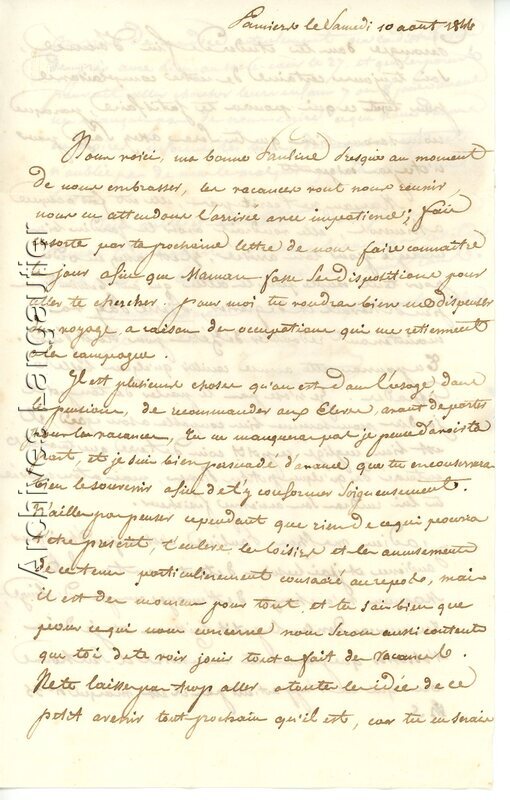 Pamiers le Samedi 10 aout 1846
Nous voici, ma bonne Pauline presque au moment
de nous embrasser, les vacances vont nous reunir,
nous en attendons l'arrivée avec impatience; fais
ensorte par ta prochaine lettre de nous faire connaître
le jour afin que Maman fasse ses dispositions pour
aller te chercher. pour moi tu voudras bien me dispenser
du voyage a raison des occupations qui me retiennent
a la campagne.
Il est plusieurs choses qu'on est dans l'usage dans
les pensions, de recommander aux Eleves avant de partir
pour les vacances, Tu ne manqueras pas je pense d'avoir ta
part, et je suis bien persuadé d'avance que tu en conserveras
bien le souvenir afin de t'y conformer soigneusement.
N'aille pas penser cependant que rien de ce qui pourra
t'être présent, t'enleve les loisirs et les amusements
de ce tems particulierement consacré au repos, mais
il est des momens pour tout, et tu sais bien que
pour ce qui nous concerne nous serons aussi contents
que toi de te voir jouir tout a fait des vacances.
Ne te laisse pas trop aller a toutes les idées de ce
petit avenir tout prochain qu'il est, car tu en serais
Archives Langautier